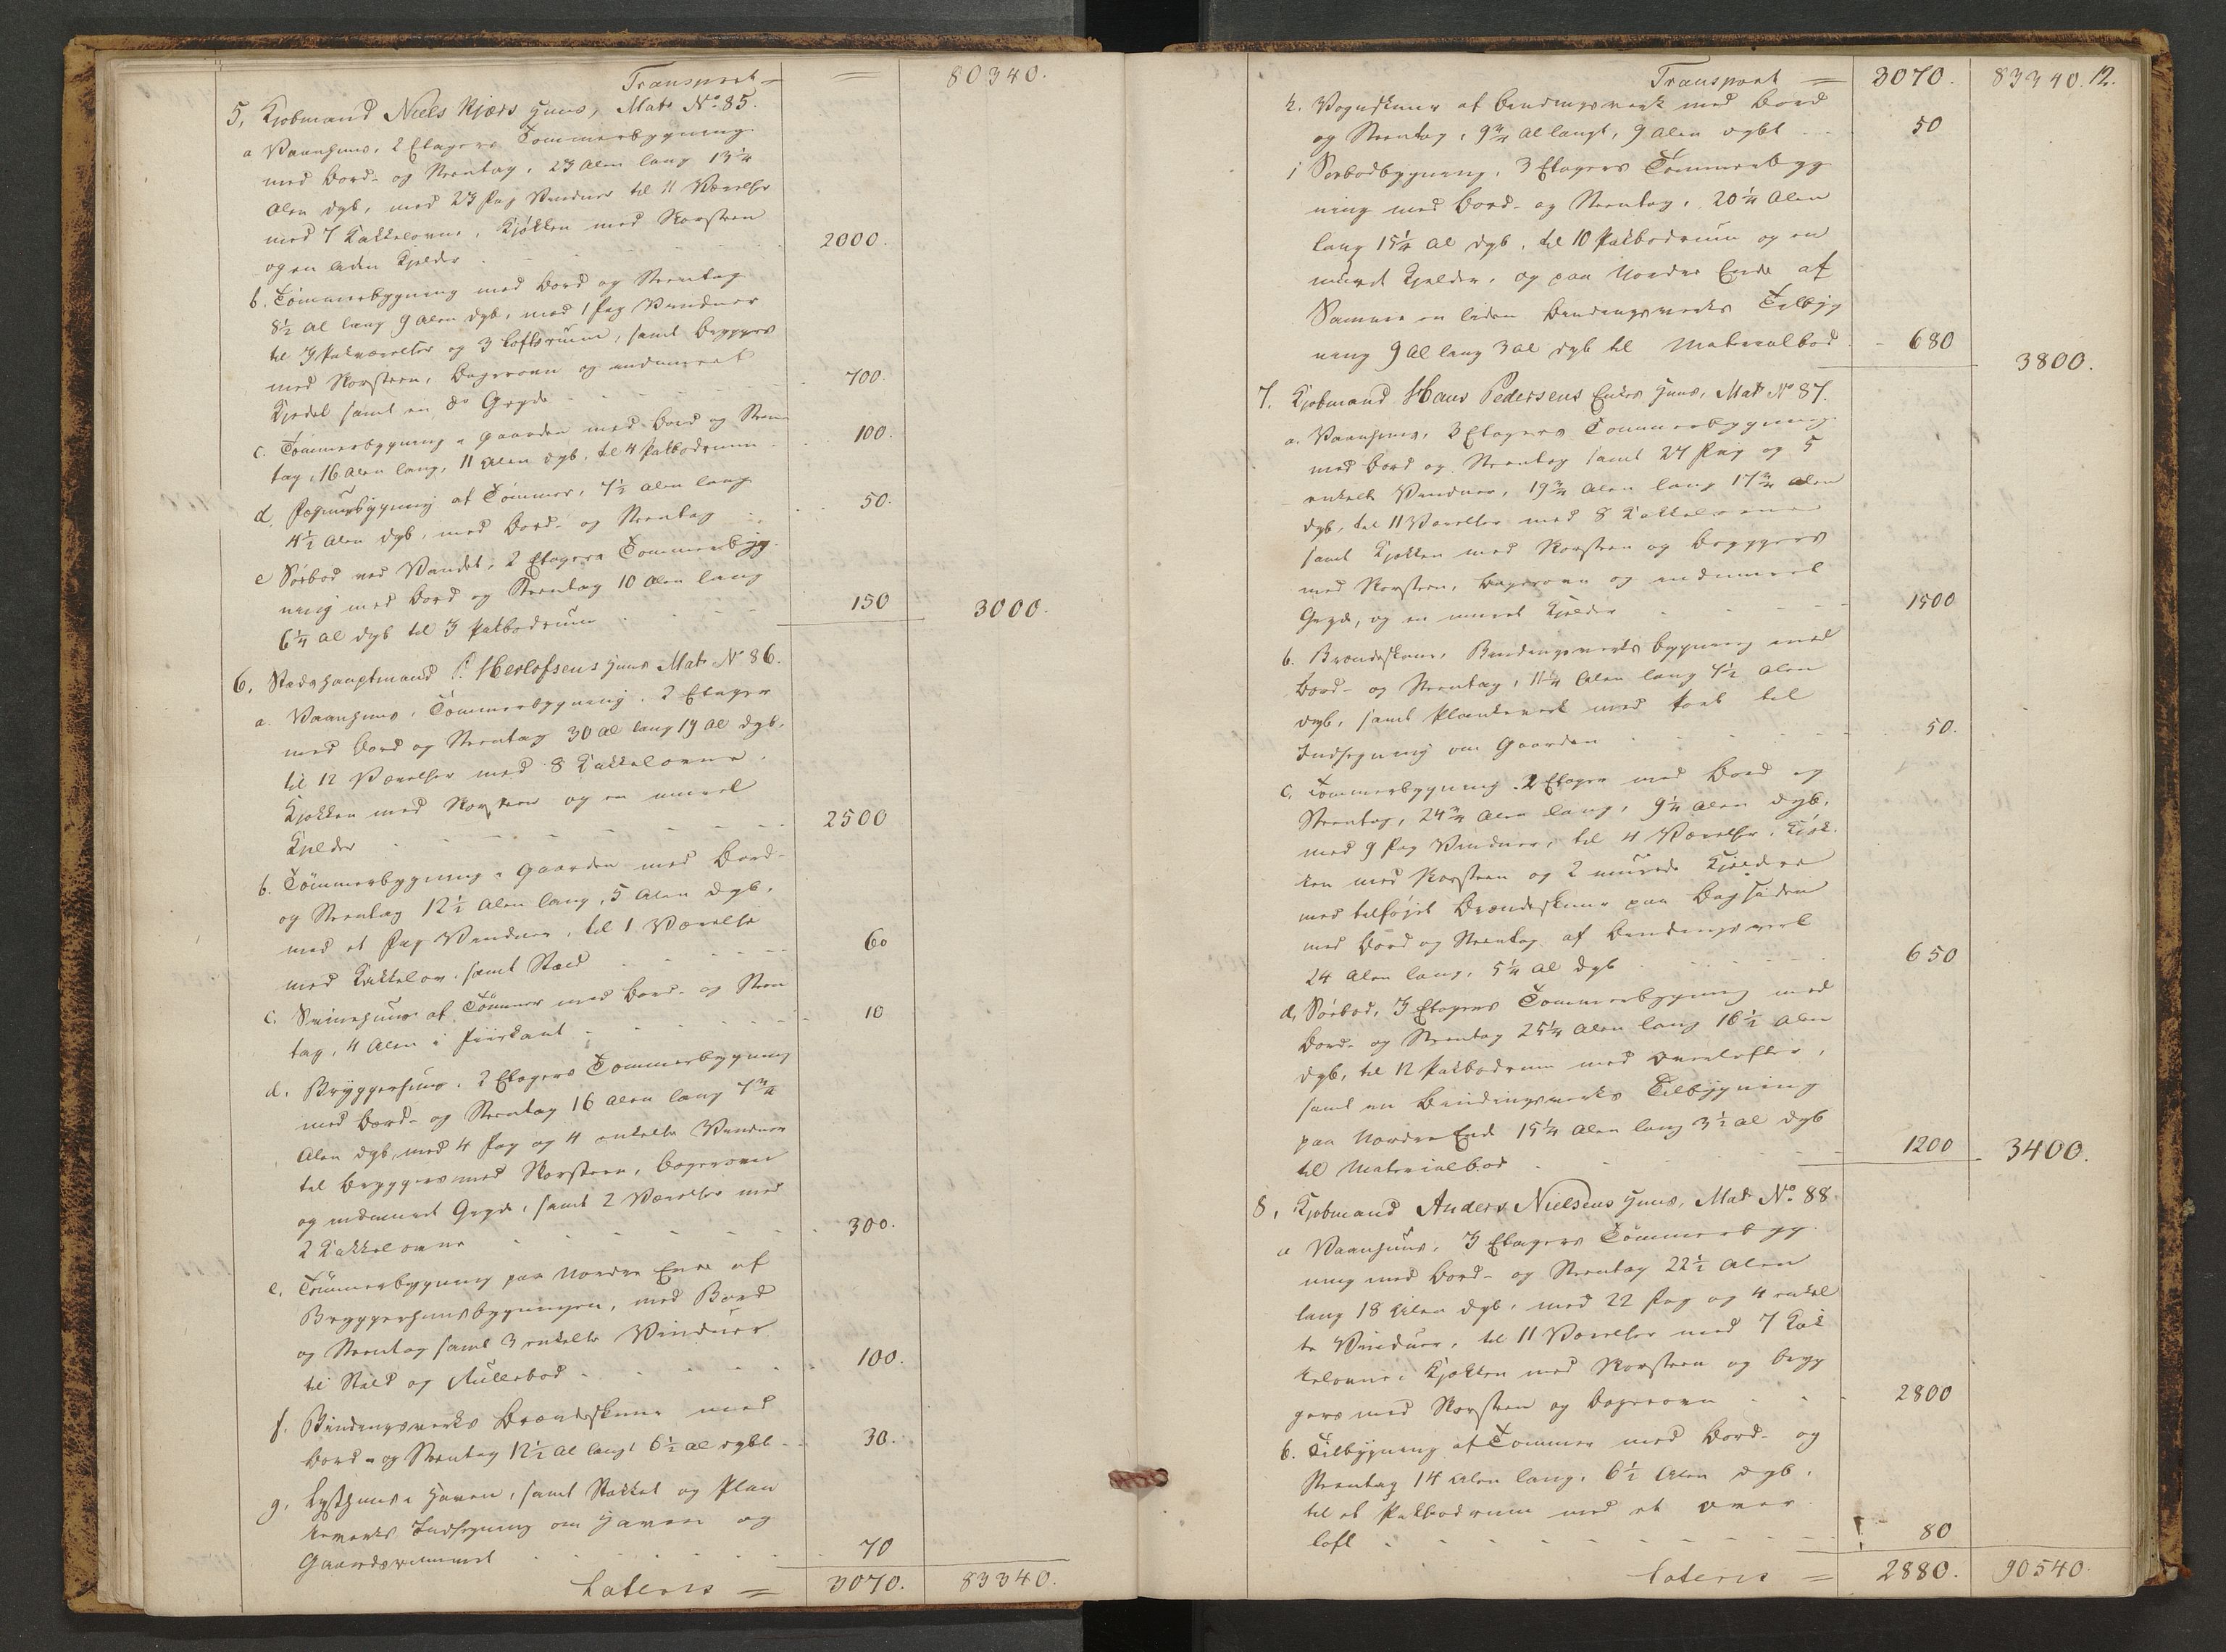 Transport = = 80340.
5, Kjøbmand Niels Kjærs Huus, Matr No 85.
a Vaanhuus, 2 Etagers Tømmerbygning
med Bord- og Steentag, 23 Alen lang 13¼
Alen dyb, med 23 Fag Vinduer til 11 Værelser
med 7 Kakkelovne, Kjøkken med Skorsteen
og en liden Kjelder 2000.
b. Tømmerbygning med Bord og Steentag
8½ Al lang 9 Alen dyb, med 1 Fag Vinduer
til 3 Pakværelser og 3 Loftsruum, samt Bryggers
med Skorsteen, Bagerovn og indmuret
Kjedel samt en do Gryde 700.
c. Tømmerbygning i Gaarden med Bord og Steen
tag, 16 Alen lang, 11 Alen dyb, til 4 Pakbodrum 100.
d. bygning af Tømmer, 7½ Alen lang
4½ Alen dyb, med Bord- og Steentag 50.
e Søebod ved Vandet, 2 Etagers Tømmerbyg
ning med Bord og Steentag 10 Alen lang
6¼ Al dyb til 3 Pakbodrum 150 3000.
6, Stadshauptmand P. Herlofsens Huus Matr No 86.
a. Vaanhuus, Tømmerbygning, 2 Etager
med Bord og Steentag 30 Al lang 19 Al dyb,
til 12 Værelser med 8 Kakkelovne,
Kjøkken med Skorsteen og en muret
Kjelder 2500
b. Tømmerbygning i Gaarden med Bord-
og Steentag 12½ Alen lang, 5 Alen dyb,
med et Fag Vinduer, til 1 Værelse
med Kakkelovn, samt Stald 60
c. Sviinehuus af Tømmer med Bord- og Steen
tag, 4 Alen i Fiirkant 10
d. Bryggerhuus, 2 Etagers Tømmerbygning
med Bord- og Steentag 16 Alen lang 7¾
Alen dyb, med 4 Fag og 4 enkelte Vinduer
til Bryggers med Skorsteen, Bagerovn
og indmuret Gryde, samt 2 Værelser med
2 Kakkelovne 300.
e. Tømmerbygning paa Nordre Ende af
Bryggerhuusbygningen, med Bord
og Steentag samt 3 enkelte Vinduer
til Stald og Rullebod 100.
f. Bindingsverks Brændeskuur med
Bord- og Steentag 12½ Al langt 6½ Al dybt 30.
g, Lysthuus i Haven, samt Stakket og Plan
keverks Indhegning om Haven og
Gaardsrummet 70
Lateris = 3070. 83340.
Transport = 3070. 83340. 12.
h. Vognskuur af Bindingsverk med Bord
og Steentag, 9¾ Al langt, 9 Alen dybt 50
i Søebodbygning, 3 Etagers Tømmerbyg
ning med Bord- og Steentag, 20¼ Alen
lang 15¼ Al dyb, til 10 Pakbodruum og en
muret Kjelder, og paa Nordre Ende af
Samme en liden Bindingsverks Tilbyg
ning 9 Al lang 3 Al dyb til Materialbod 680 3800.
7. Kjøbmand Hans Pedersens Enkes Huus, Matr No 87.
a. Vaanhuus, 3 Etagers Tømmerbygning
med Bord og Steentag samt 27 Fag og 5
enkelte Vinduer, 19¾ Alen lang 17¾ Alen
dyb, til 11 Værelser med 8 Kakkelovne
samt Kjøkken med Skorsteen og Bryggers
med Skorsteen, Bagerovn og indmuret
Gryde, og en muret Kjelder 1500
b. Brændeskuur, Bindingsverks bygning med
Bord- og Steentag, 11¼ Alen lang 7½ Alen
dyb, samt Plankeverk med Port til
Indhegning om Gaarden 50.
c, Tømmerbygning 2 Etager med Bord og
Steentag, 24¾ Alen lang, 9¼ Alen dyb,
med 9 Fag Vinduer, til 4 Værelser, Kjøk-
ken med Skorsteen og 2 murede Kjeldre
med tilføjet Brændeskuur paa Bagsiden
med Bord og Steentag af Bindingsverk
24 Alen lang, 5¼ Al dyb 650
d, Søebod, 3 Etagers Tømmerbygning med
Bord- og Steentag 25¼ Alen lang 16½ Alen
dyb, til 12 Pakbodrum med Overlofter,
samt en Bindingsverks Tilbygning
paa Nordre Ende 15¼ Alen lang 3½ Al dyb
til Materialbod 1200 3400.
8, Kjøbmand Anders Nielsens Huus, Matr No 88
a Vaanhuus, 3 Etagers Tømmerbyg
ning med Bord- og Steentag 22½ Alen
lang 18 Alen dyb, med 22 Fag og 4 enkel
te Vinduer, til 11 Værelser med 7 Kak
kelovne, Kjøkken med Skorsteen og Bryg
gers med Skorsteen og Bagerovn 2800
b. Tilbygning af Tømmer med Bord- og
Steentag 14 Alen lang, 6½ Alen dyb,
til et Pakbodrum med et Over
loft 80
Lateris = 2880. 90540.